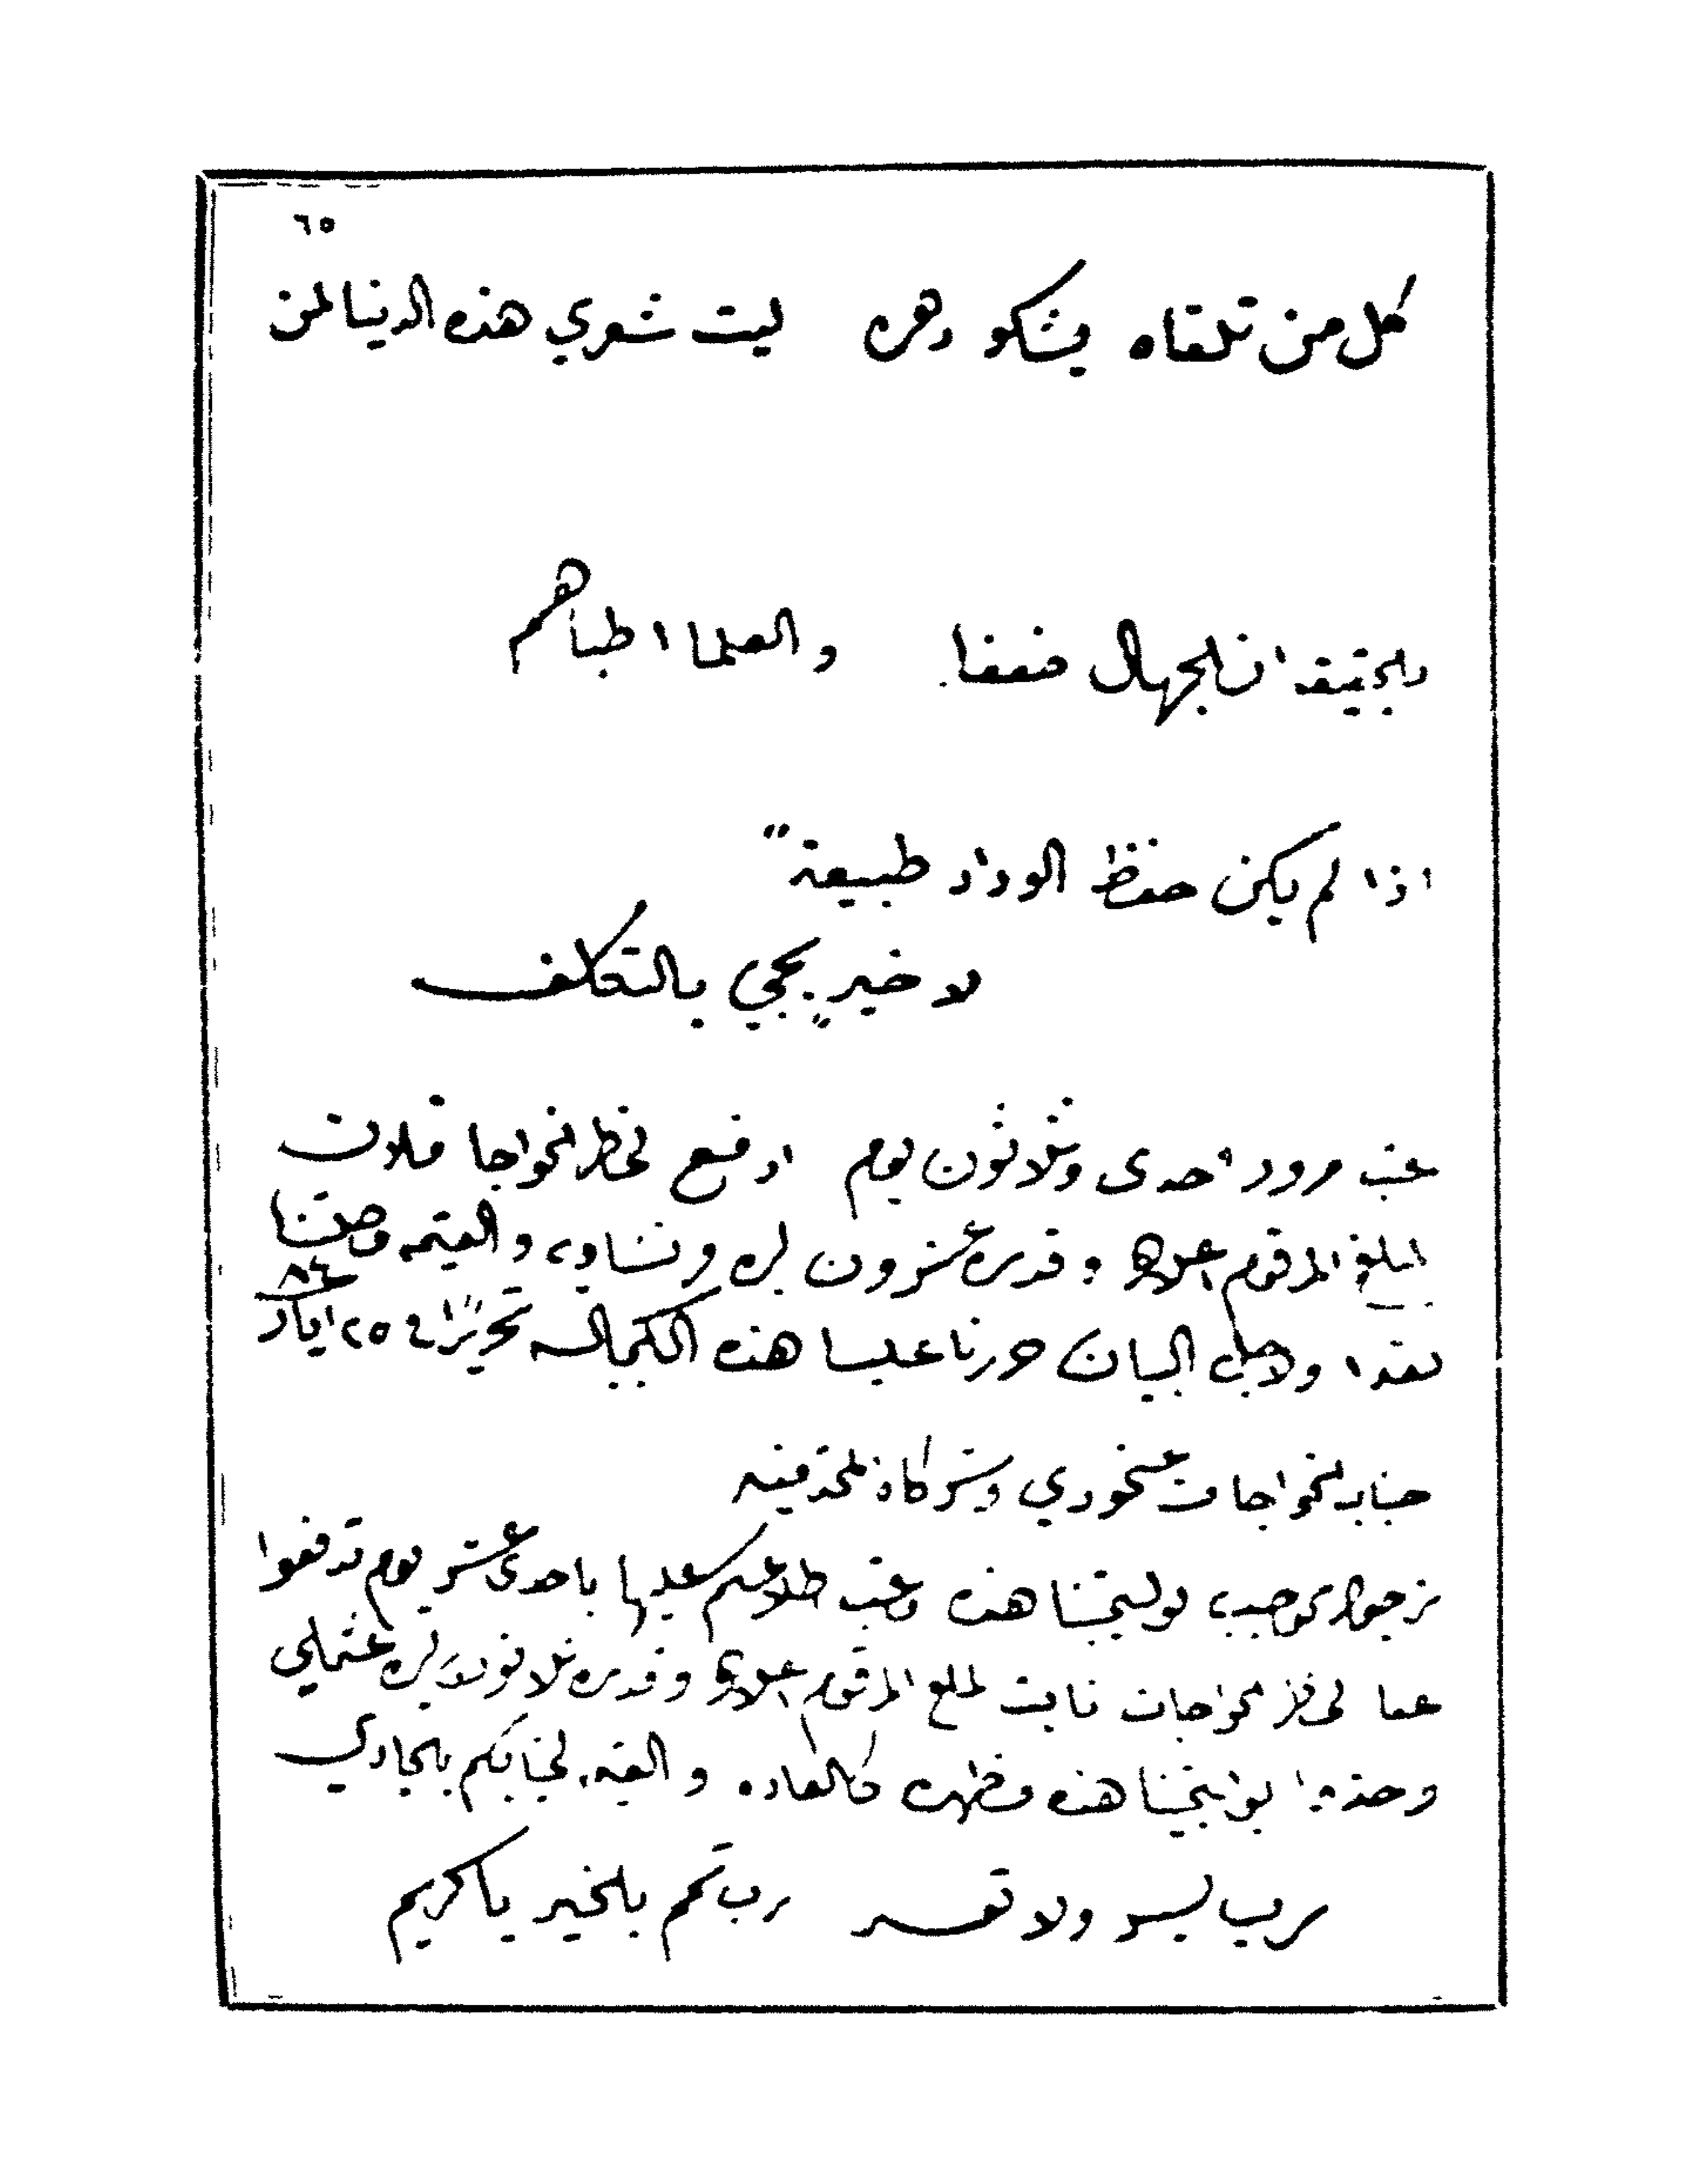 ٦٥
كل من تلقاه يشكو دهره ليت شعري هذه الدنيا لمن
بالحقيقه ان الجهال ضعفا والعلما اطباهم
اذا لم يكن حفظ الوداد طبيعة"
لا خير يجي بالتكلف
عقب مرور احدى وثلاثون يوم ادفع لخاطر الخواجا فلان
المبلغ المرقوم اعلاه وقدره عشرون ليره فرنساوي والقيمه وصلتنا
نقدا ولاجل البيان حررنا علينا هذه الكمبياله تحريرًا في ٢٥ ايار ٨٤
جناب الخواجات خوري وشركاه المحترمين
نرجوا بموجب بوليصتنا هذه وعقب طلاعكم عليها باحدى عشر يوم تدفعوا
عنا الخواجات ثابت المبلغ المرقوم اعلاه وقدره ثلاثون ليره عثملي
وخذوا بوليصتنا هذه مظهره كالعاده والقيمه لجنابكم بالجاري
رب يسر ولا تعسر رب تمم بالخير يا كريم